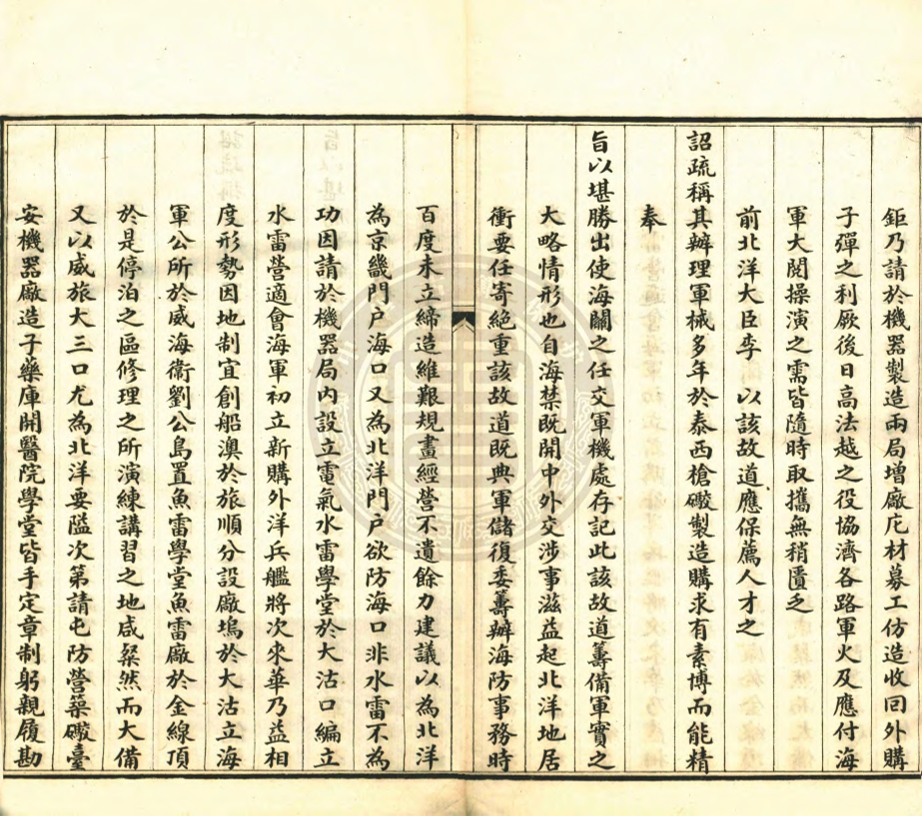 鉅乃請於機器製造兩局增廠庀材募工仿造收回外購
子彈之利厥後日高法越之役協濟各路軍火及應付海
軍大閱操演之需皆隨時取攜無稍匱乏
前北洋大臣李 以該故道應保薦人才之
詔疏稱其辦理軍械多年於泰西槍礮製造購求有素博而能精
奉
旨以堪勝出使海關之任交軍機處存記此該故道籌備軍實之
大略情形也自海禁既開中外交涉事滋益起北洋地居
衝要任寄絕重該故道既典軍儲復委籌辦海防事務時
百度未立締造維艱規畫經營不遺餘力建議以為北洋
為京畿門户海口又為北洋門户欲防海口非水雷不為
功因請於機器局内設立電氣水雷學堂於大沽口編立
水雷營適會海軍初立新購外洋兵艦將次來華乃益相
度形勢因地制宜創船澳於旅順分設廠塢於大沽立海
軍公所於威海衛劉公島置魚雷學堂魚雷廠於金線頂
於是停泊之區修理之所演練講習之地咸粲然而大備
又以威旅大三口尤為北洋要隘次第請屯防營築礮臺
安機器廠造子藥庫開醫院學堂皆手定章制躬親履勘